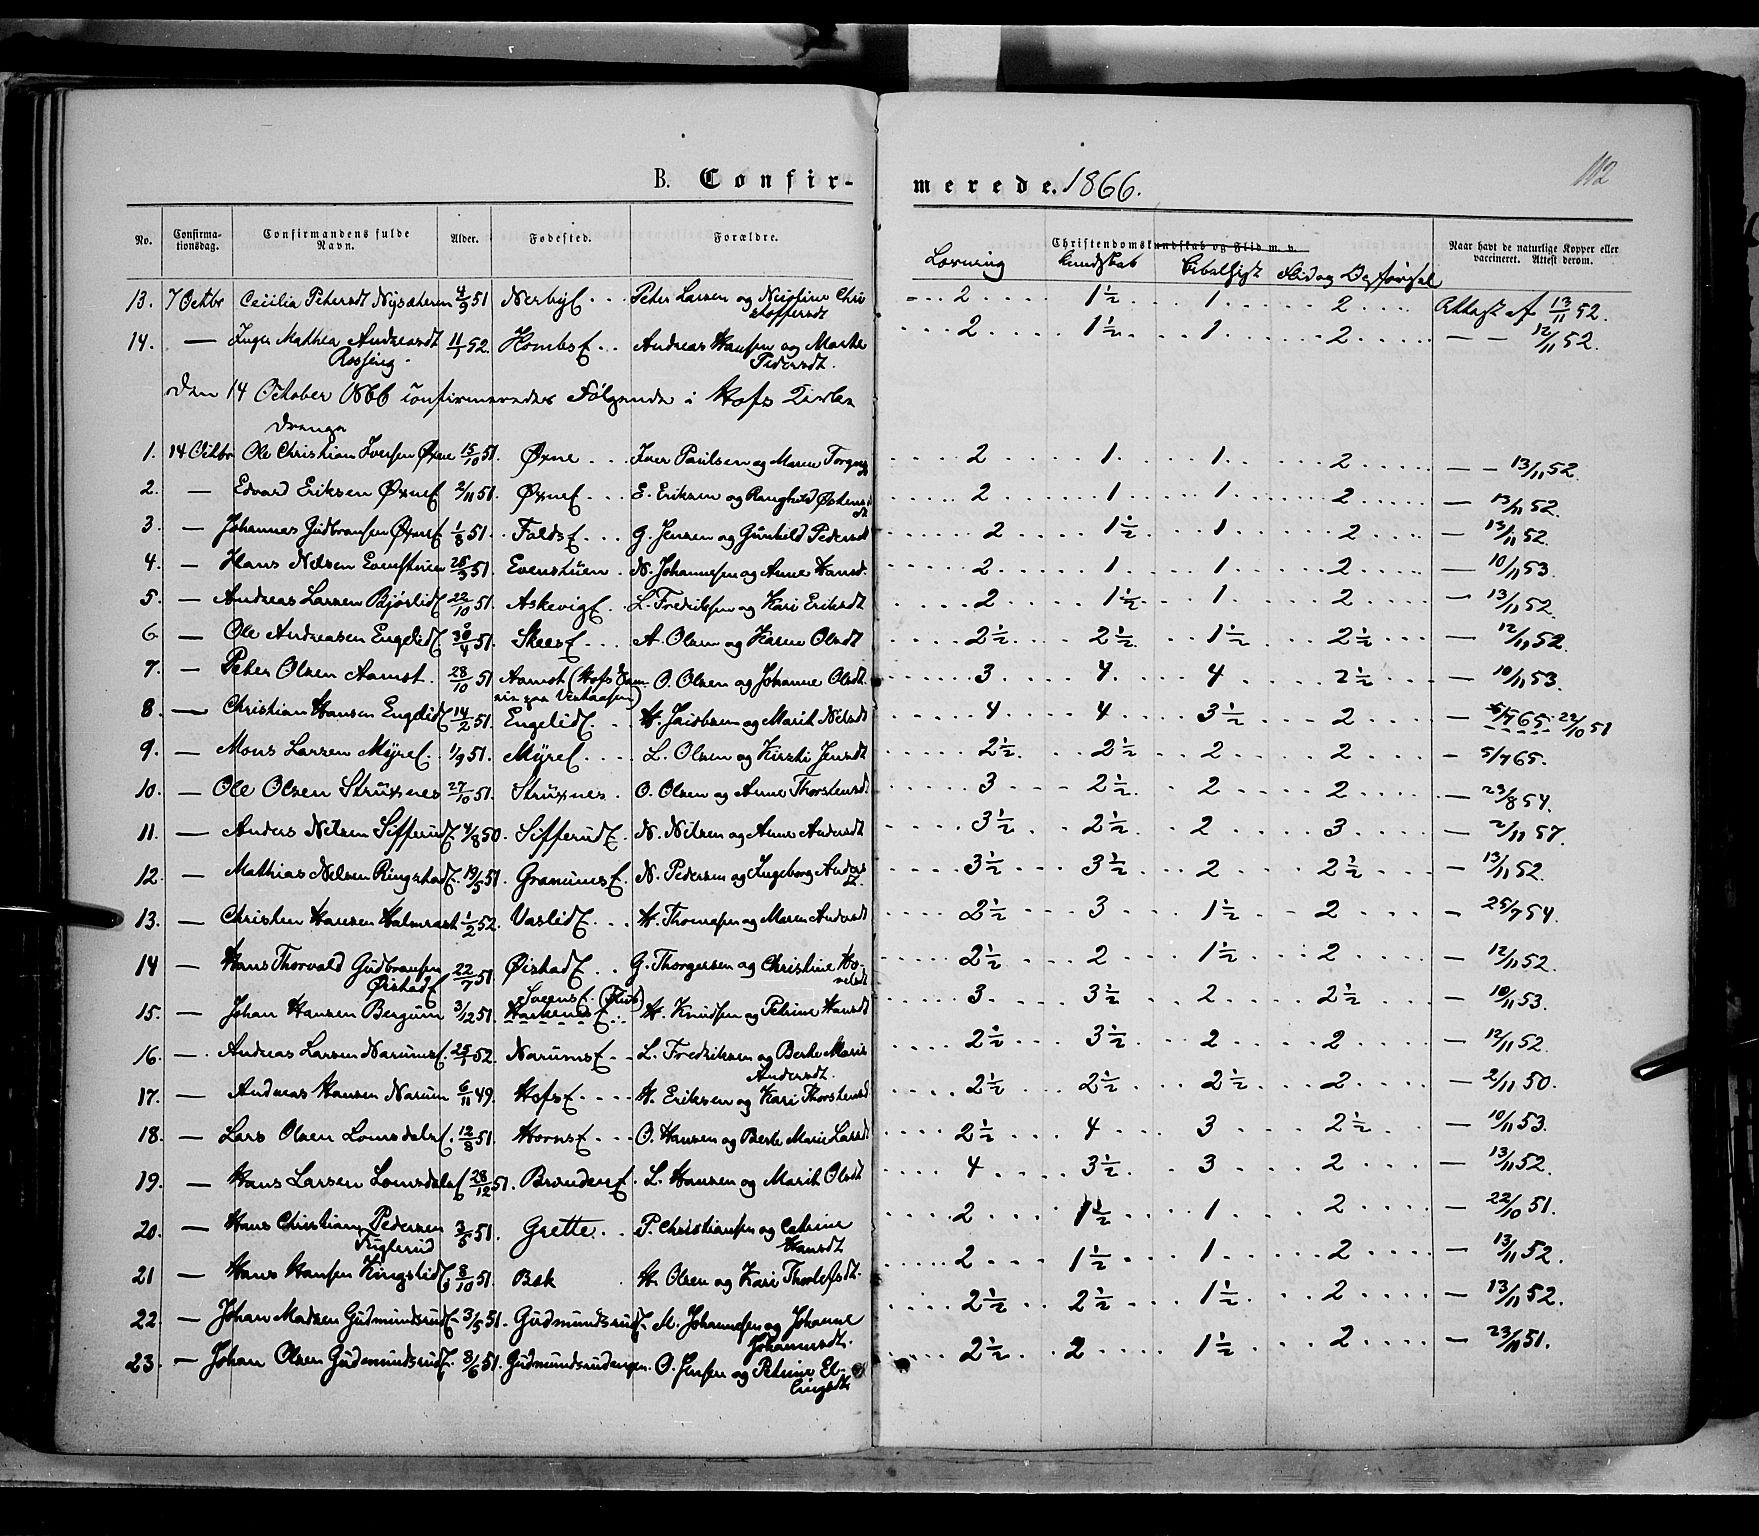 B. Confir-
merede. 1866.
112
No. Confirma-tionsdag. Confirmandens fulde Navn. Alder. Fødested. Forældre. Læsning Christendomskundskab og Flid m. v. Kundskab Flid og Naar havt de naturlige Kopper eller vaccineret. Attest derom.
13. 7 Octbr Cecilia Petersdt 4/9 51 Nerbyf Peter Larsen og Chri 2 1½ 1 2 Attest af 13/11 52.
stoffersdt
14. — Inger Mathea Andreasdt 11/1 52. Andreas Hansen og Marthe 2 1½ 1 2 — — 12/11 52.
Røssing Pedersdt.
den 14 October 1866 confirmeredes Følgende i Hofs Kirke
Drenge
1. 14 Octbr Ole Christian Iversen Øxne 15/10 51. Øxne Iver Paulsen og Maren 2 1 1 2 — — 13/11 52.
2. — Edvard Eriksen Øxnef 2/11 51. Øxnef E. Eriksen og Ranghild 2 1 1 2 — 13/11 52.
3. — Johannes Gudbransen Øxnef 1/8 51. Faldsf G. Jensen og Gunhild Pedersdt 2 1½ 1 2 — 13/11 52.
4. — Hans Nilsen Evenstuen 51. Evenstuen N. Johannesen og Anne Hansd. 2 1 1 2 — 10/11 53.
5. — Andreas Larsen 22/10 51. Askevigf. L. Fredriksen og Kari Eriksdt 2 1½ 1 2 — 13/11 52.
6 — Ole Andreasen Engelidf 51. A. Olsen og Karen Olsdt 2½ 2½ 1½ 2½ — 12/11 52.
7. — Peter Olsen Aamot. 28/10 51 Aamot (Hofs O. Olsen og Johanne Olsdt 3 4 4 2½ — 10/11 53.
8. — Christian Hansen Engelidf 14/2 51. Engelidf. H. Jacobsen og Marit Nilsdt 4 4 3½ 2 — 5/7 65. 22/10 51
9. — Mons Larsen Myref. 1/9 51. Myref. L. Olsen og Kirsti Jensdt 2½ 2½ 2 2 — 5/7 65.
10. — Ole Olsen Strüxnes 27/10 51. Strüxnes O. Olsen og Anne Thorstensd. 3 2½ 2 2 — 23/8 54.
11. — Anders Nilsen Sifferudf. 4/8 50. Sifferudf. N. Nilsen og Anne Andersdt 3½ 2½ 2 3 — 2/11 57.
12. — Mathias Nilsen Ringstadf. 19/5 51. Granumsf. N. Pedersen og Ingeborg Anders 3½ 3½ 2 2½ — 13/11 52.
dt.
13. — Christen Hansen Halmrast 1/2 52. Vaslidf. H. Thomesen og Maren Andersdt 2½ 3 1½ 2 — 25/7 54.
14 — Hans Thorvald Gudbransen 22/7 51 Øistadf. G. Thorgersen og Christine Ho- 2½ 2 1½ 2 — 12/11 52.
Øistadf velsdt
15. — Johan Hansen Bergum 3/12 51. H. Knudsen og Petrine Hansdt 3 3½ 2 2½ — 10/11 53.
16. — Andreas Larsen Narumsf. 25/1 52. Narumsf. L. Fredriksen og Berthe Marie 2½ 3½ 2 2 — 12/11 52.
Andersdt.
17. — Andreas Hansen Narum 6/11 49. Hofsf. H. Eriksen og Kari Thorstensd 2½ 2½ 2½ 2 — 2/11 50.
18. — Lars Olsen Lomsdalsf. 12/8 51. Hornsf. O. Hansen og Berthe Marie Larsdt 2½ 4 3 2½ — 10/11 53.
19. — Hans Larsen Lomsdalsf 28/12 51. Brændenf. L. Hansen og Marit Olsdt 4 3½ 3 2 — 13/11 52.
20. — Hans Christian Pedersen 3/5 51. Grette P. Christiansen og Catrine 2 1½ 1 2 — 22/10 51.
Fuglerud Hansdt
21 — Hans Hansen Kingslidf. 8/10 51. Bæk H. Olsen og Kari 2 1½ 1 2 — 13/11 52.
22. — Johan Madsen Gudmundsrudf. 3/5 51. Gudmundsrudf. M. Johannesen og Johanne 2½ 2½ 1½ 2 — 13/11 52.
Johannesdt.
23. — Johan Olsen Gudmundsrudf. 3/6 51. Gudmundsrudengen. O. Jensen og Petrine El- 2½ 2 1½ 2 — 23/11 51.
lingsdt